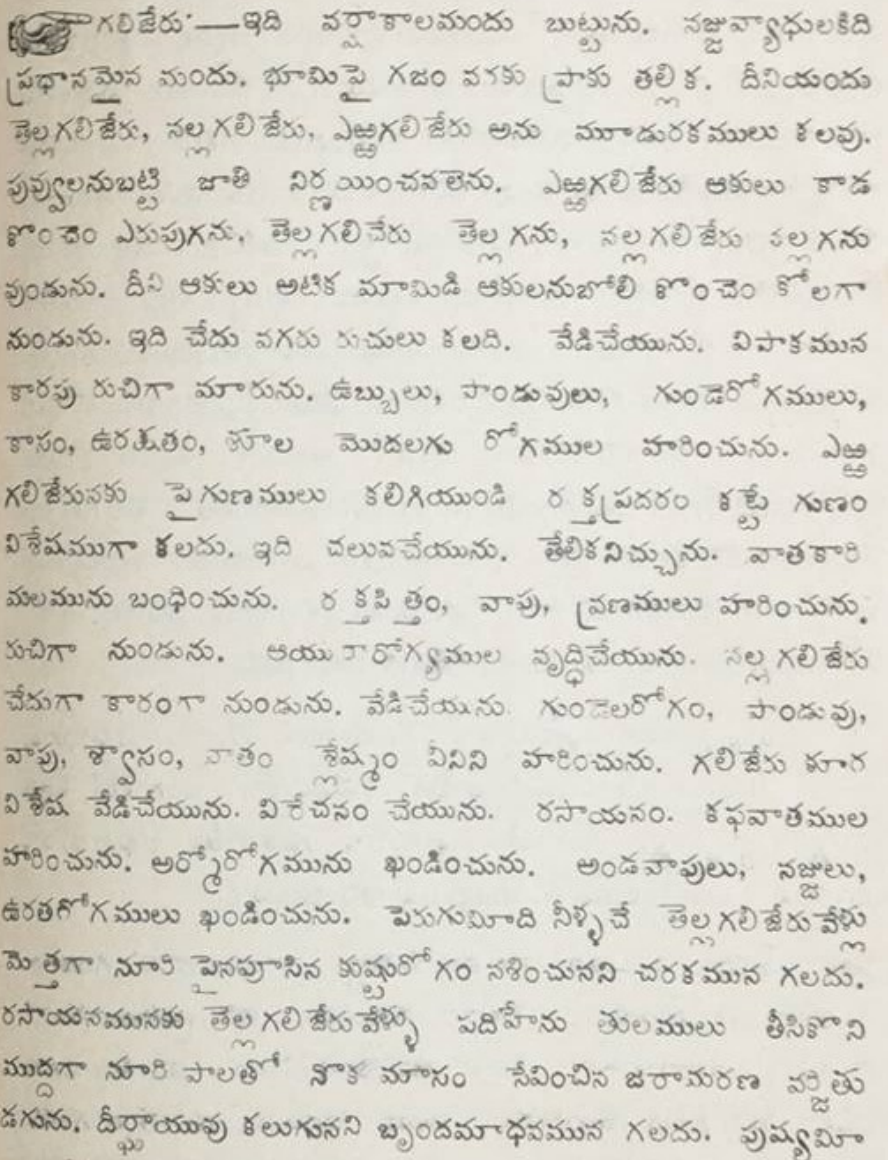 గలిజేరు—ఇది వర్షాకాలమందు బుట్టును. నజ్జువ్యాధులకిది
ప్రధానమైన మందు. భూమిపై గజం వరకు ప్రాకు తల్లిక. దీనియందు
తెల్లగలిజేరు, నల్లగలిజేరు, ఎఱ్ఱగలిజేరు అను మూడురకములు కలవు.
పువ్వులనుబట్టి జాతి నిర్ణయించవలెను. ఎఱ్ఱగలిజేరు ఆకులు కాడ
కొంచెం ఎరుపుగను, తెల్లగలిచేరు తెల్లగను, నల్లగలిజేరు నల్లగను
వుండును. దీని ఆకులు అటిక మామిడి ఆకులనుబోలి కొంచెం కోలగా
నుండును. ఇది చేదు వగరు రుచులు కలది. వేడిచేయును. విపాకమున
కారపు రుచిగా మారును. ఉబ్బులు, పాండువులు, గుండెరోగములు,
కాసం, ఉరఃక్షతం, శూల మొదలగు రోగముల హరించును. ఎఱ్ఱ
గలిజేరునకు పైగుణములు కలిగియుండి రక్తప్రదరం కట్టే గుణం
విశేషముగా కలదు. ఇది చలువచేయును. తేలికనిచ్చును. వాతకారి
మలమును బంధించును. రక్తపిత్తం, వాపు, వ్రణములు హరించును.
రుచిగా నుండును. ఆయురారోగ్యముల వృద్ధిచేయును. నల్లగలిజేరు
చేదుగా కారంగా నుండును. వేడిచేయును. గుండెలరోగం, పాండువు,
వాపు, శ్వాసం, వాతం శ్లేష్మం వీనిని హరించును. గలిజేరు కూర
విశేష వేడిచేయును. విరేచనం చేయును. రసాయనం. కఫవాతముల
హరించును. అర్శోరోగమును ఖండించును. అండవాపులు, నజ్జులు,
ఉరతరోగములు ఖండించును. పెరుగుమీది నీళ్ళచే తెల్లగలిజేరు వేళ్లు
మెత్తగా నూరి పైనపూసిన కుష్ఠురోగం నశించునని చరకమున గలదు.
రసాయనమునకు తెల్లగలిజేరువేళ్ళు పదిహేను తులములు తీసికొని
ముద్దగా నూరి పాలతో నొక మాసం సేవించిన జరామరణ వర్జితు
డగును. దీర్ఘాయువు కలుగునని బృందమాధవమున గలదు. పుష్యమీ